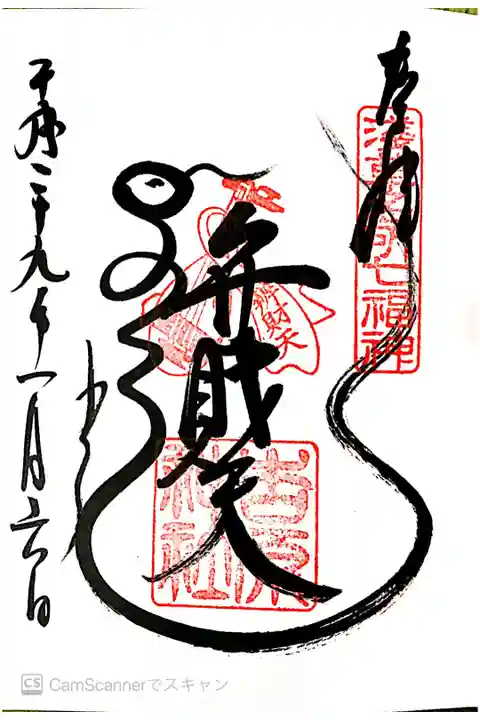 奉拝
浅草名所七福神
弁財天
辨財天
吉原神社
平成二十九年一月六日
CS CamScannerでスキャン